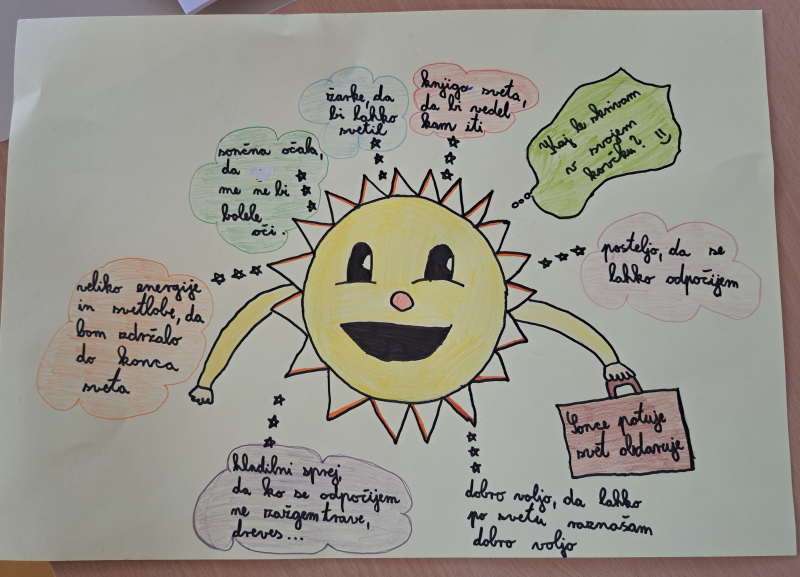 žarke, da
bi lahko
svetil
knjiga sveta,
da bi vedel
kam iti
Kaj le skrivam
v svojem
kovčku?
sončna očala,
da
me ne bi
bolele
oči.
posteljo, da se
lahko odpočijem
veliko energije
in svetlobe, da
bom zdržalo
do konca
sveta
Sonce potuje
svet obdaruje
hladilni sprej,
da ko se odpočijem
ne zažgem trave,
dreves...
dobro voljo, da lahko
po svetu raznašam
dobro voljo